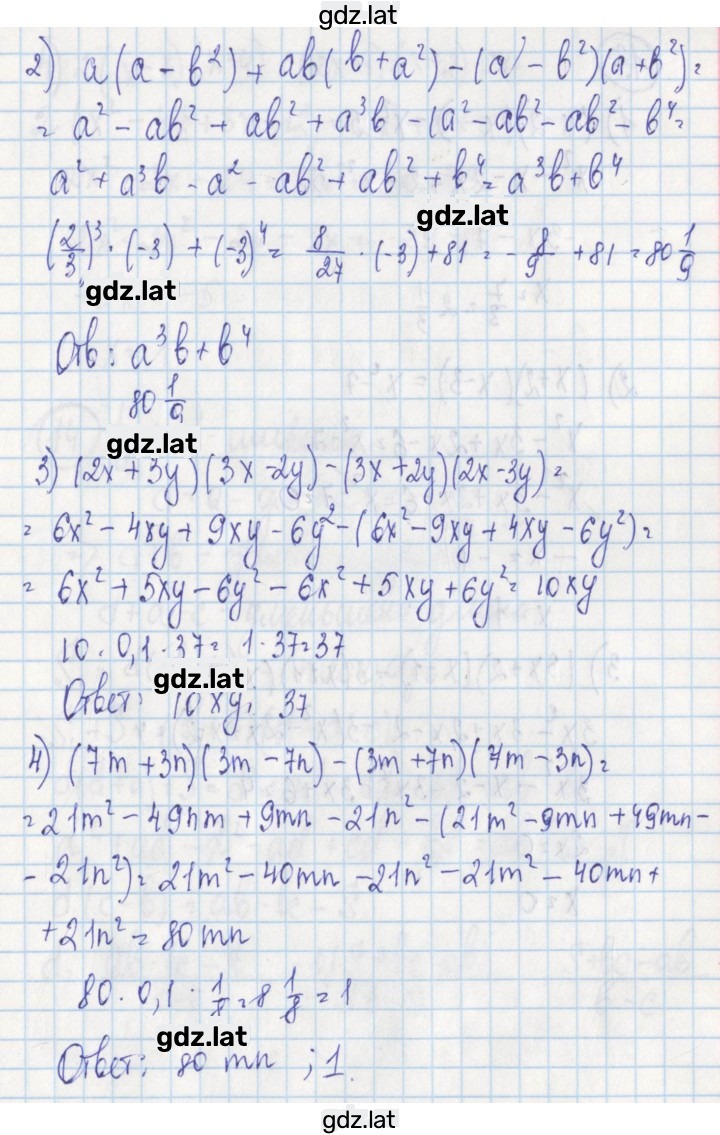 gdz.lat
2) a(a - b²) + ab(b + a²) - (a - b²)(a + b²) =
= a² - ab² + ab² + a³b - (a² - ab² - ab² - b⁴ =
a² + a³b - a² - ab² + ab² + b⁴ = a³b + b⁴
gdz.lat
(2/3)³ · (-3) + (-3)⁴ = 8/27 · (-3) + 81 = - 8/9 + 81 = 80 1/9
gdz.lat
Отв: a³b + b⁴
80 1/9
gdz.lat
3) (2x + 3y)(3x - 2y) - (3x + 2y)(2x - 3y) =
= 6x² - 4xy + 9xy - 6y² - (6x² - 9xy + 4xy - 6y²) =
= 6x² + 5xy - 6y² - 6x² + 5xy + 6y² = 10xy
10 · 0,1 · 37 = 1 · 37 = 37
gdz.lat
Ответ: 10xy; 37
4) (7m + 3n)(3m - 7n) - (3m + 7n)(7m - 3n) =
= 21m² - 49nm + 9mn - 21n² - (21m² - 9mn + 49mn -
- 21n²) = 21m² - 40mn - 21n² - 21m² - 40mn +
+ 21n² = 80mn
80 · 0,1 · 1/8 = 8 1/8 = 1
gdz.lat
Ответ: 80mn ; 1.
gdz.lat